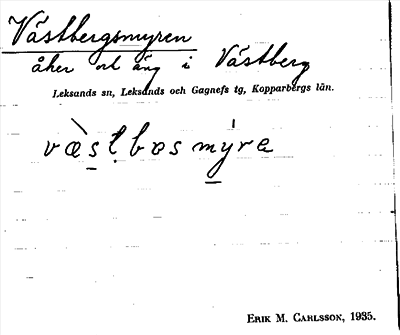 Västbergsmyren
åker och äng i Västberg
Leksands sn, Leksands och Gagnefs tg, Kopparbergs län.
væ̀s̠t̠bɷsmý̠rɐ
ERIK M. CARLSSON, 1935.